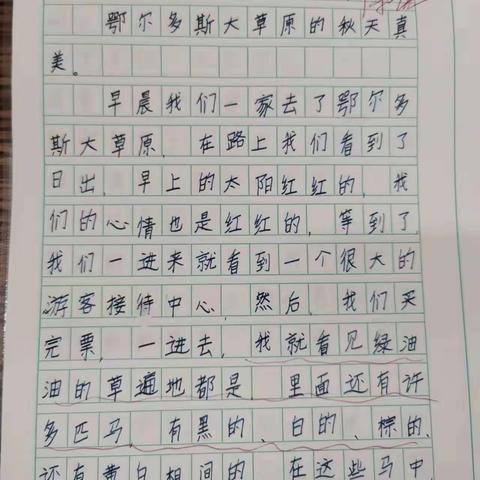 鄂尔多斯大草原的秋天真
美。
早晨我们一家去了鄂尔多
斯大草原，在路上我们看到了
日出，早上的太阳红红的，我
们的心情也是红红的，等到了，
我们一进来就看到一个很大的
游客接待中心，然后，我们买
完票，一进去，我就看见绿油
油的草遍地都是，里面还有许
多匹马，有黑的、白的、棕的，
还有黄白相间的，在这些马中，